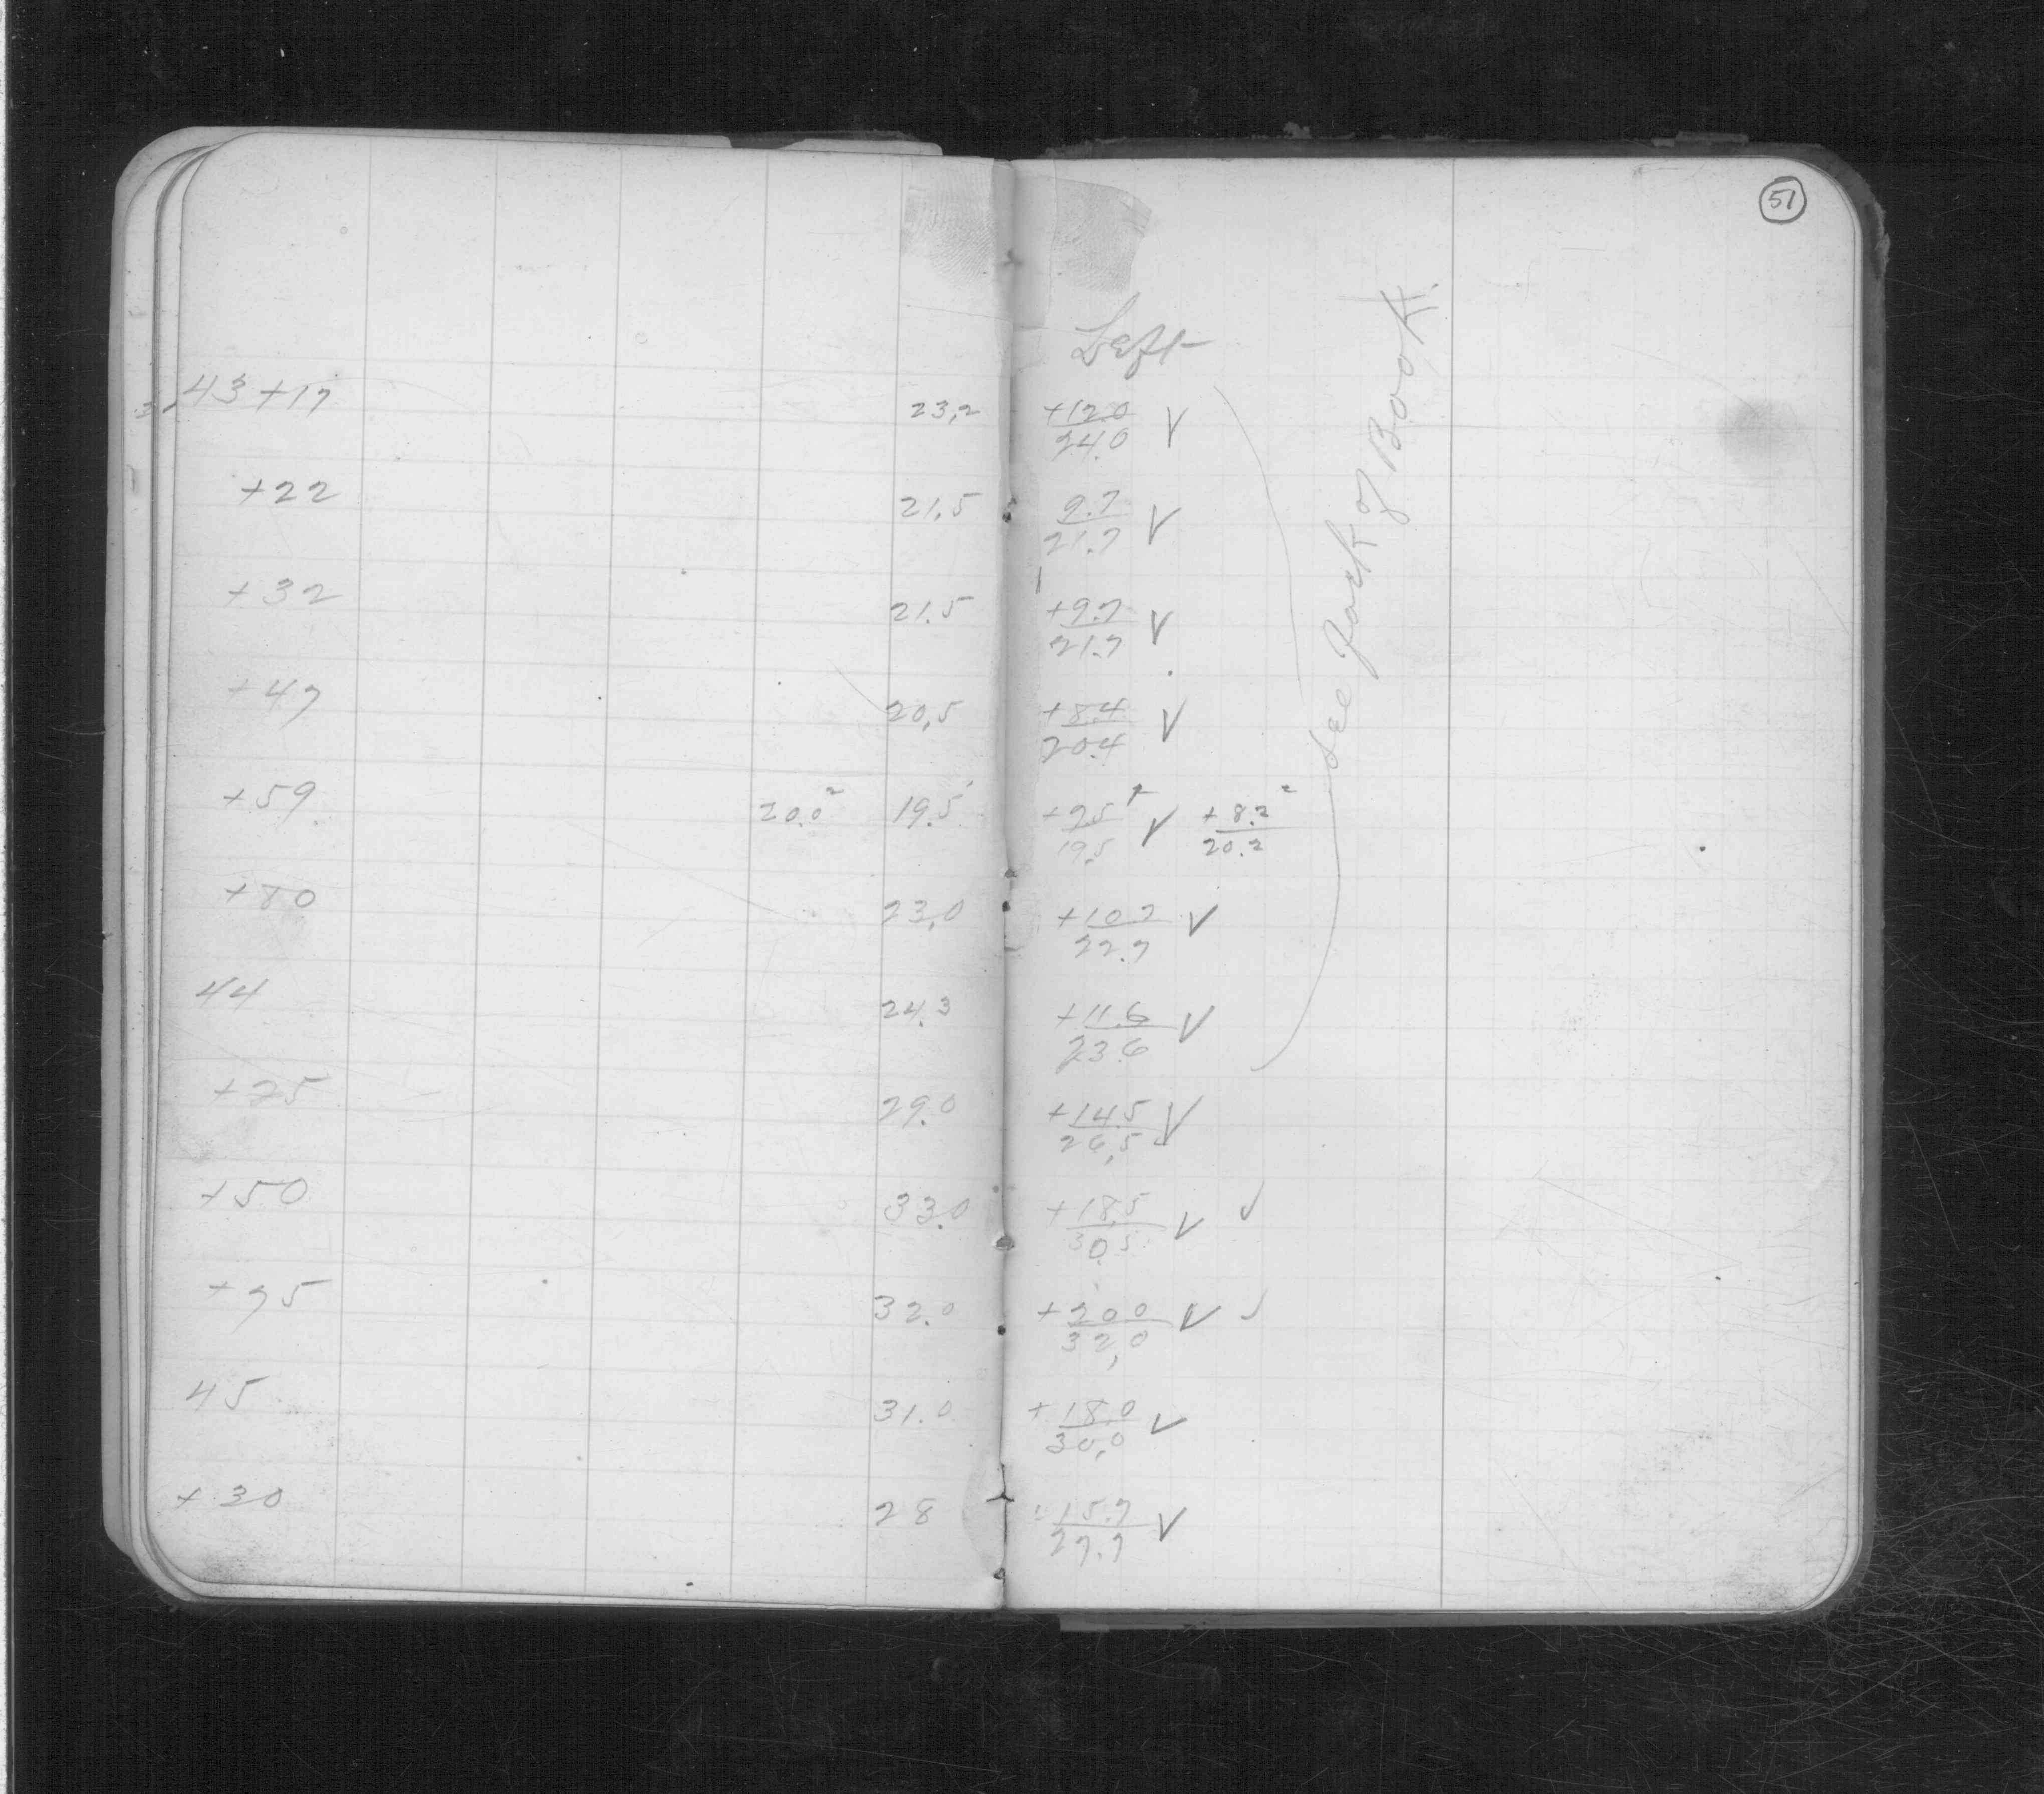 51
Left
43+17 23.2 +12.0/24.0 √
+22 21.5 9.7/21.7 √
+32 21.5 +9.7/21.7 √
+47 20.5 +8.4/20.4 √
+59 20.0² 19.5 +7.5/19.5 √ +8.2²/20.2
+80 23.0 +10.7/22.7 √
44 24.3 +11.6/23.6 √
+25 29.0 +14.5/26.5 √
+50 33.0 +18.5/30.5 √ √
+75 32.0 +20.0/32.0 √ √
45 31.0 +18.0/30.0 √
+30 28 15.7/27.7 √
see back of Book